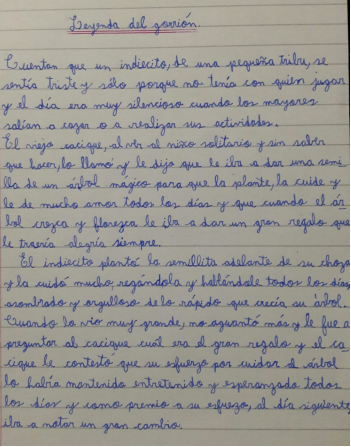 Leyenda del gorrión.
Cuentan que un indiecito, de una pequeña tribu, se
sentía triste y sólo porque no tenía con quien jugar
y el día era muy silencioso cuando los mayores
salían a cazar o a realizar sus actividades.
El viejo cacique, al ver al niño solitario y sin saber
que hacer, lo llamó y le dijo que le iba a dar una semi
lla de un árbol mágico para que la plante, la cuide y
le de mucho amor todos los días y que cuando el ár
bol crezca y florezca le iba a dar un gran regalo que
le traería alegría siempre.
El indiecito plantó la semillita adelante de su choza
y la cuidó mucho, regándola y hablándole todos los días,
asombrado y orgulloso de lo rápido que crecía su árbol.
Cuando lo vio muy grande, no aguantó más y le fue a
preguntar al cacique cuál era el gran regalo y el ca
cique le contestó que su esfuerzo por cuidar el árbol
lo había mantenido entretenido y esperanzado todos
los días y como premio a su esfuerzo, al día siguiente
iba a notar un gran cambio.